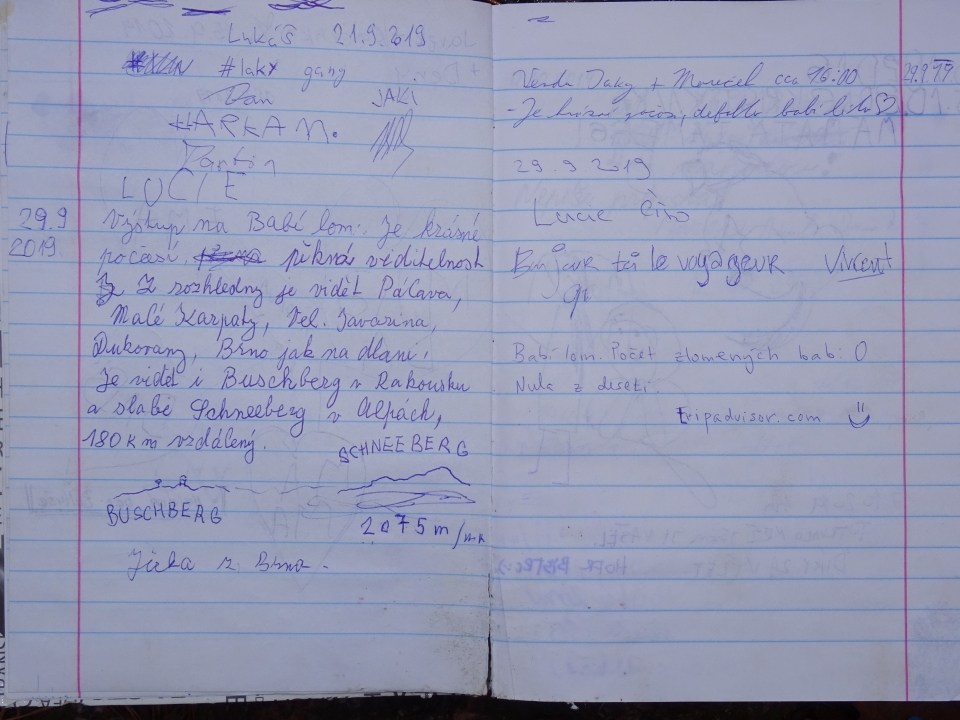 Lukáš 21.9.2019
#laky gang
Dan JAKI
HARKA M.
LUCIE
29.9 2019
Výstup na Babí lom. Je krásné
počasí, pěkná viditelnost
Z rozhledny je vidět Pálava,
Malé Karpaty, Vel. Javořina,
Dukovany, Brno jak na dlani.
Je vidět i Buschberg v Rakousku
a slabě Schneeberg v Alpách,
180 km vzdálený.
SCHNEEBERG
BUSCHBERG
2075 m
z Brna.
+ cca 16:00 29.9 19
- Je babí léto
29 9 2019
Lucie
le voyageur Vincent
Babí lom. Počet zlomených bab: 0
Nula z deseti.
tripadvisor.com